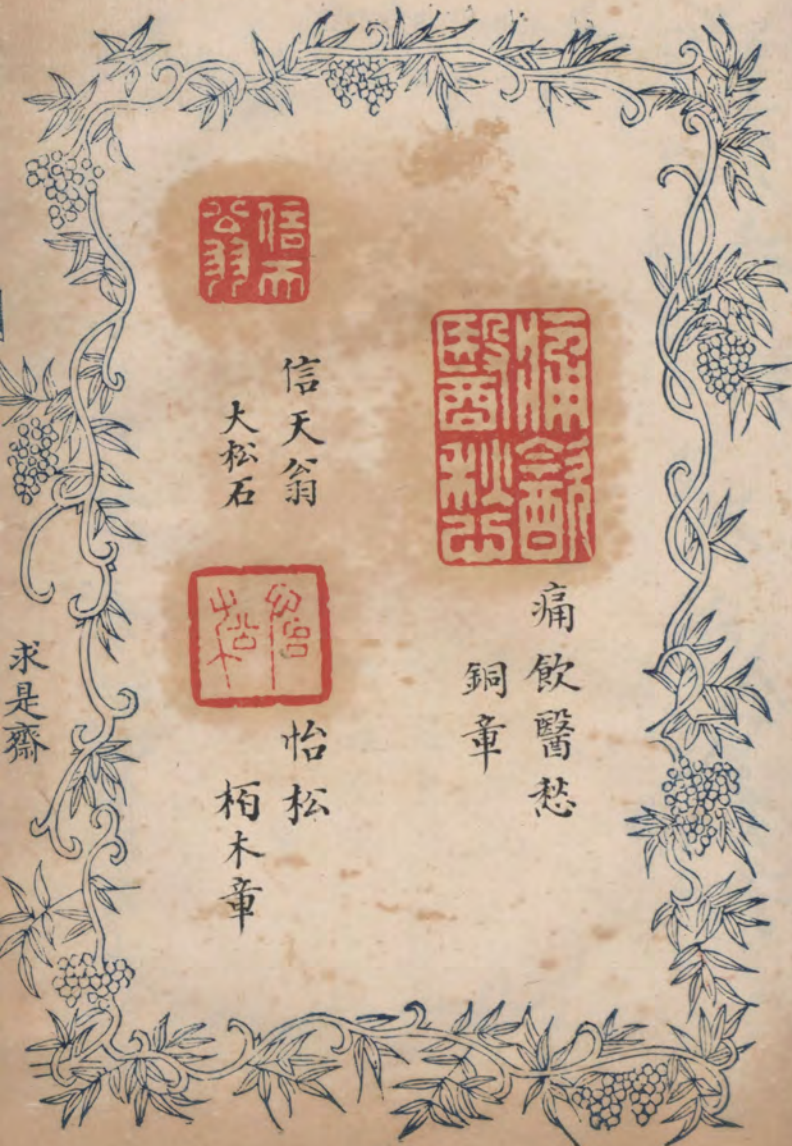 痛飲醫愁
痛飲醫愁
銅章
信天翁
信天翁
大松石
怡松
怡松
栢木章
求是齋